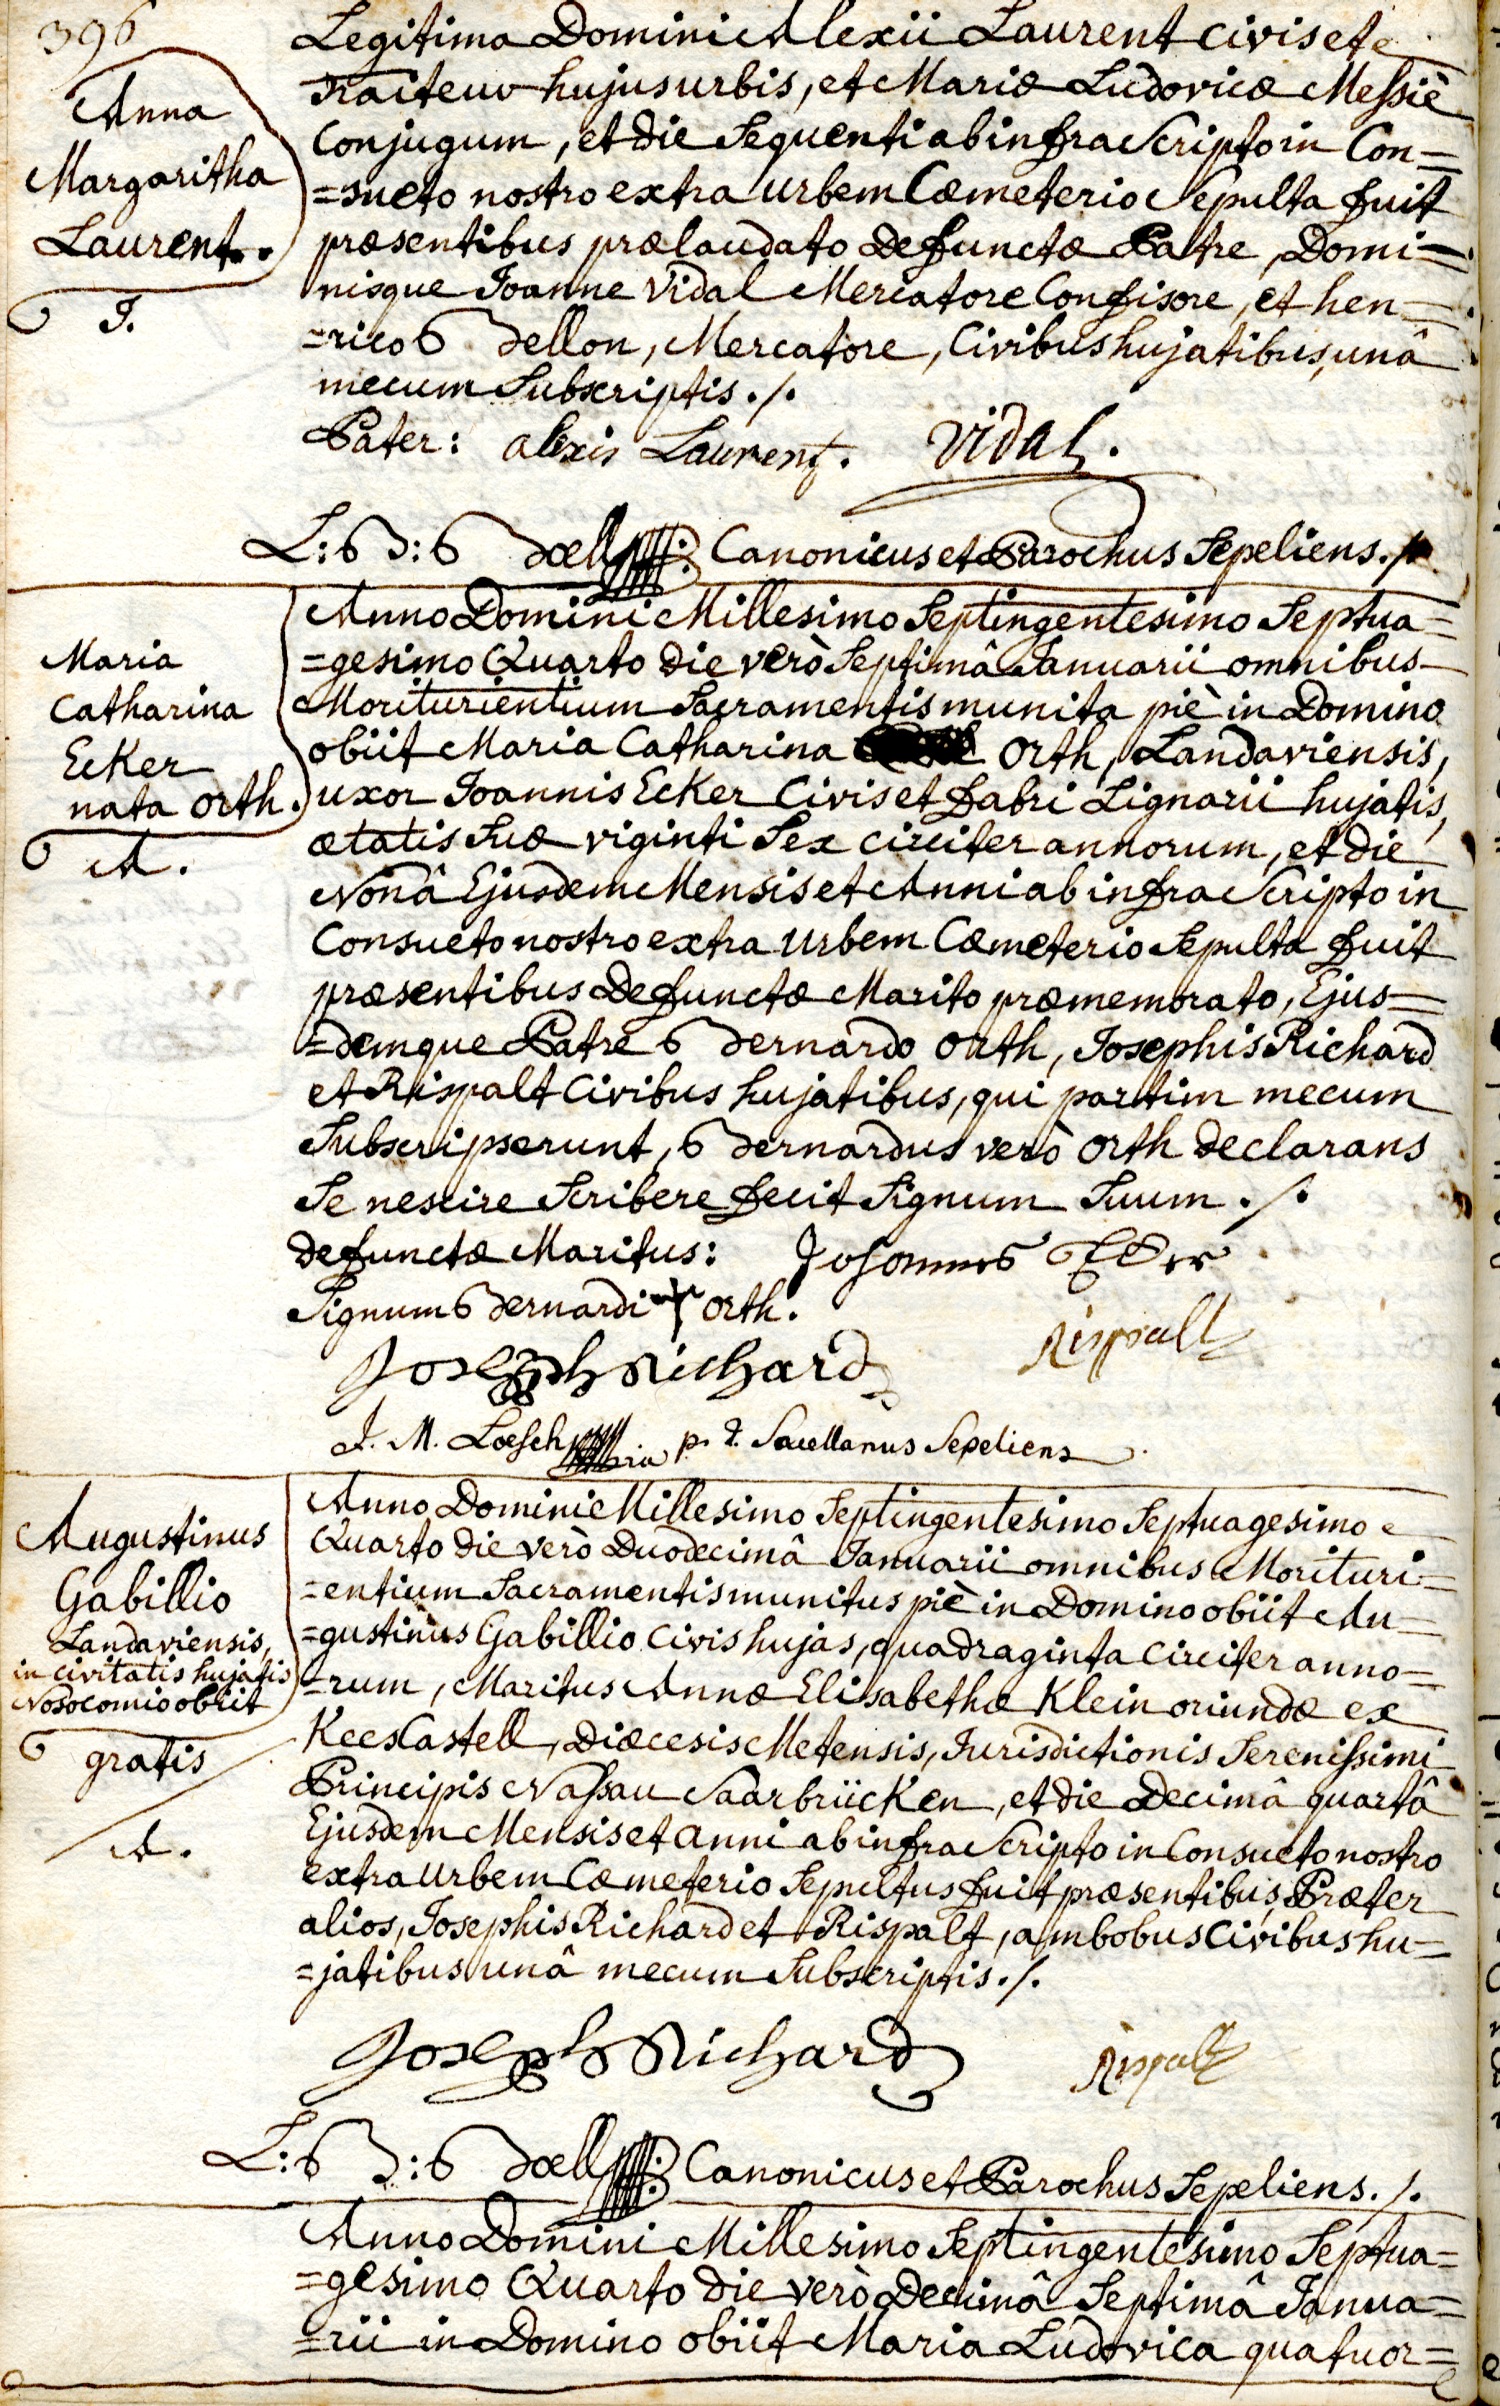 396
Anna
Margaritha
Laurent.
I.
Legitima Domini Alexii Laurent civis et
traiteur hujus urbis, et Mariæ Ludovicæ Messié
Conjugum, et die Sequenti ab infra Scripto in Con=
=sueto nostro extra urbem Cæmeterio Sepulta fuit
præsentibus prælaudato defunctæ Patre, Domi=
nisque Joanne Vidal Mercatore Confisore, et hen=
=rico Bellon, Mercatore, Civibus hujatibus, unâ
mecum Subscriptis ./.
Pater: alexis Laurent. Vidal.
L: B: Boell Canonicus et Parochus Sepeliens ./.
Maria
Catharina
Ecker
nata Orth.
A.
Anno Domini Millesimo Septingentesimo Septua=
=gesimo Quarto die verò Septimâ Januarii omnibus
Moriturientium Sacramentis munita piè in Domino
obiit Maria Catharina Orth, Landaviensis,
uxor Joannis Ecker Civis et fabri Lignarii hujatis,
ætatis Suæ viginti Sex circiter annorum, et die
Nonâ Ejusdem Mensis et Anni ab infra Scripto in
Consueto nostro extra urbem Cæmeterio Sepulta fuit
præsentibus defunctæ Marito præmemorato, Ejus=
=demque Patre Bernardo Orth, Josephis Richard
et Rispalt Civibus hujatibus, qui partim mecum
Subscripserunt, Bernardus verò Orth declarans
Se nescire Scribere fecit Signum Suum ./.
defunctæ Maritus: Johannes Ecker
Signum Bernardi Orth.
Rispalt
Joseph Richard
J. M. Loesch p. t. Sacellanus Sepeliens
Augustinus
Gabillio
Landaviensis,
in civitatis hujatis
Nosocomio obiit
gratis
A.
Anno Domini Millesimo Septingentesimo Septuagesimo
Quarto die verò Duodecimâ Januarii omnibus Morituri=
=entium Sacramentis munitus piè in Domino obiit Au=
=gustinus Gabillio civis hujas, quadraginta Circiter anno=
=rum, Maritus Annæ Elisabethæ Klein oriundæ ex
Keeskastell, Diæcesis Metensis, Jurisdictionis Serenissimi
Principis Nassau Saarbrücken, et die Decimâ quartâ
Ejusdem Mensis et anni ab infra Scripto in Consueto nostro
extra Urbem Cæmeterio Sepultus fuit præsentibus, Præter
alios, Josephis Richard et Rispalt, ambobus Civibus hu=
=jatibus unâ mecum Subscriptis ./.
Joseph Richard Rispalt
L: B: Boell Canonicus et Parochus Sepeliens ./.
Anno Domini Millesimo Septingentesimo Septua=
=gesimo Quarto die verò Decimâ Septimâ Janua=
=rii in Domino obiit Maria Ludovica quatuor=